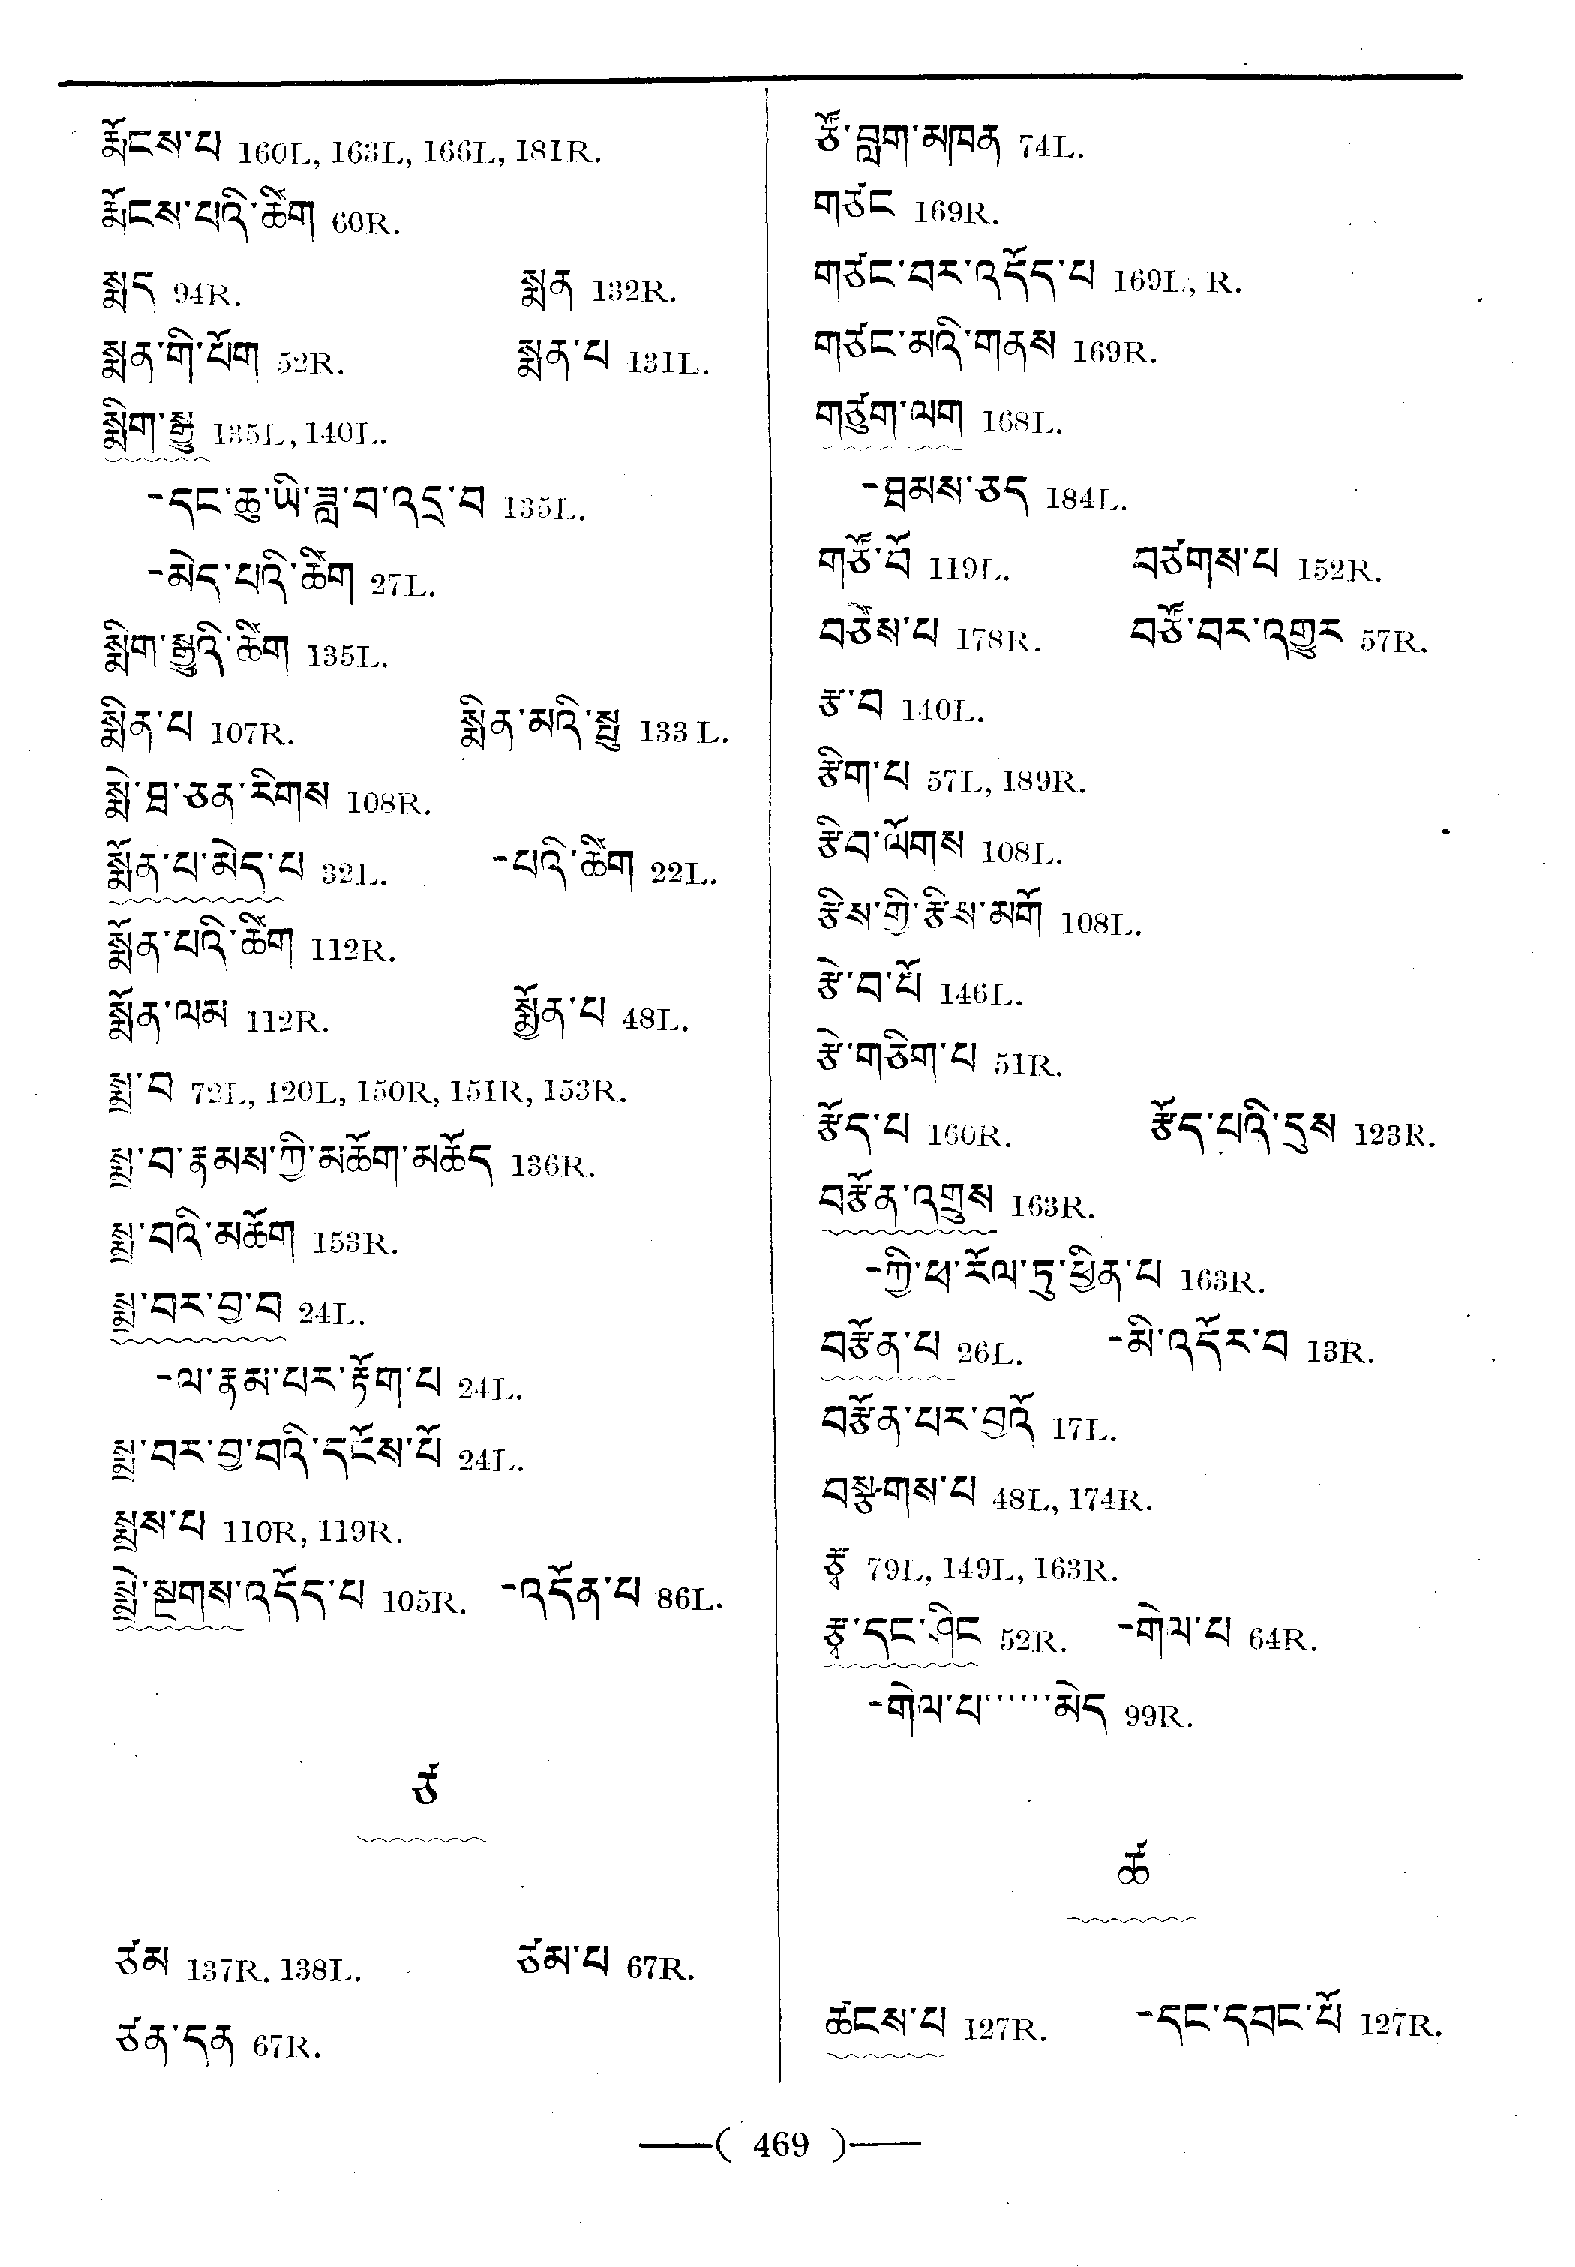 རྨོངས་པ 160L, 163L, 166L, 181R.
རྨོངས་པའི་ཚིག 60R.
སྨད 94R. སྨན 132R.
སྨན་གི་པོག 52R. སྨན་པ 131L.
སྨིག་རྒྱུ 135L, 140L.
-དང་ཆུ་ཡི་ཟླ་བ་འདྲ་བ 135L.
-མེད་པའི་ཚིག 27L.
སྨིག་རྒྱུའི་ཚིག 135L.
སྨིན་པ 107R. སྨིན་མའི་སྤུ 133 L.
སྨེ་ཤ་ཅན་རིགས 108R.
སྨོན་པ་མེད་པ 32L. -པའི་ཚིག 22L.
སྨོན་པའི་ཚིག 112R.
སྨོན་ལམ 112R. སྨྱོན་པ 48L.
སྨྲ་བ 72L, 120L, 150R, 151R, 153R.
སྨྲ་བ་རྣམས་ཀྱི་མཆོག་མཆོད 136R.
སྨྲ་བའི་མཆོག 153R.
སྨྲ་བར་བྱ་བ 24L.
-ལ་རྣམ་པར་རྟོག་པ 24L.
སྨྲ་བར་བྱ་བའི་དངོས་པོ 24L.
སྨྲས་པ 110R, 119R.
སྨྲེ་སྔགས་འདོད་པ 105R. -འདོན་པ 86L.
ཙ
ཙམ 137R. 138L. ཙམ་པ 67R.
ཙན་དན 67R.
ཙོ་བླག་མཁན 74L.
གཙང 169R.
གཙང་བར་འདོད་པ 169L, R.
གཙང་མའི་གནས 169R.
གཙུག་ལག 168L.
-ཐམས་ཅད 184L.
གཙོ་བོ 119L. བཙགས་པ 152R.
བཙེས་པ 178R. བཙོ་བར་འགྱུར 57R.
རྩ་བ 140L.
རྩིག་པ 57L, 189R.
རྩིབ་ལོགས 108L.
རྩིས་ཀྱི་རྩིས་མགོ 108L.
རྩེ་བ་པོ 146L.
རྩེ་གཅིག་པ 51R.
རྩོད་པ 160R. རྩོད་པའི་དུས 123R.
བརྩོན་འགྲུས 163R.
-ཀྱི་ཕ་རོལ་ཏུ་ཕྱིན་པ 163R.
བརྩོན་པ 26L. -མི་འདོར་བ 13R.
བརྩོན་པར་བྱའོ 17L.
བསྩགས་པ 48L, 174R.
རྩྭ 79L, 149L, 163R.
རྩྭ་དང་ཤིང 52R. -གེལ་པ 64R.
-གེལ་པ་་་་་་མེད 99R.
ཚ
ཚངས་པ 127R. -དང་དབང་པོ 127R.
( 469 )